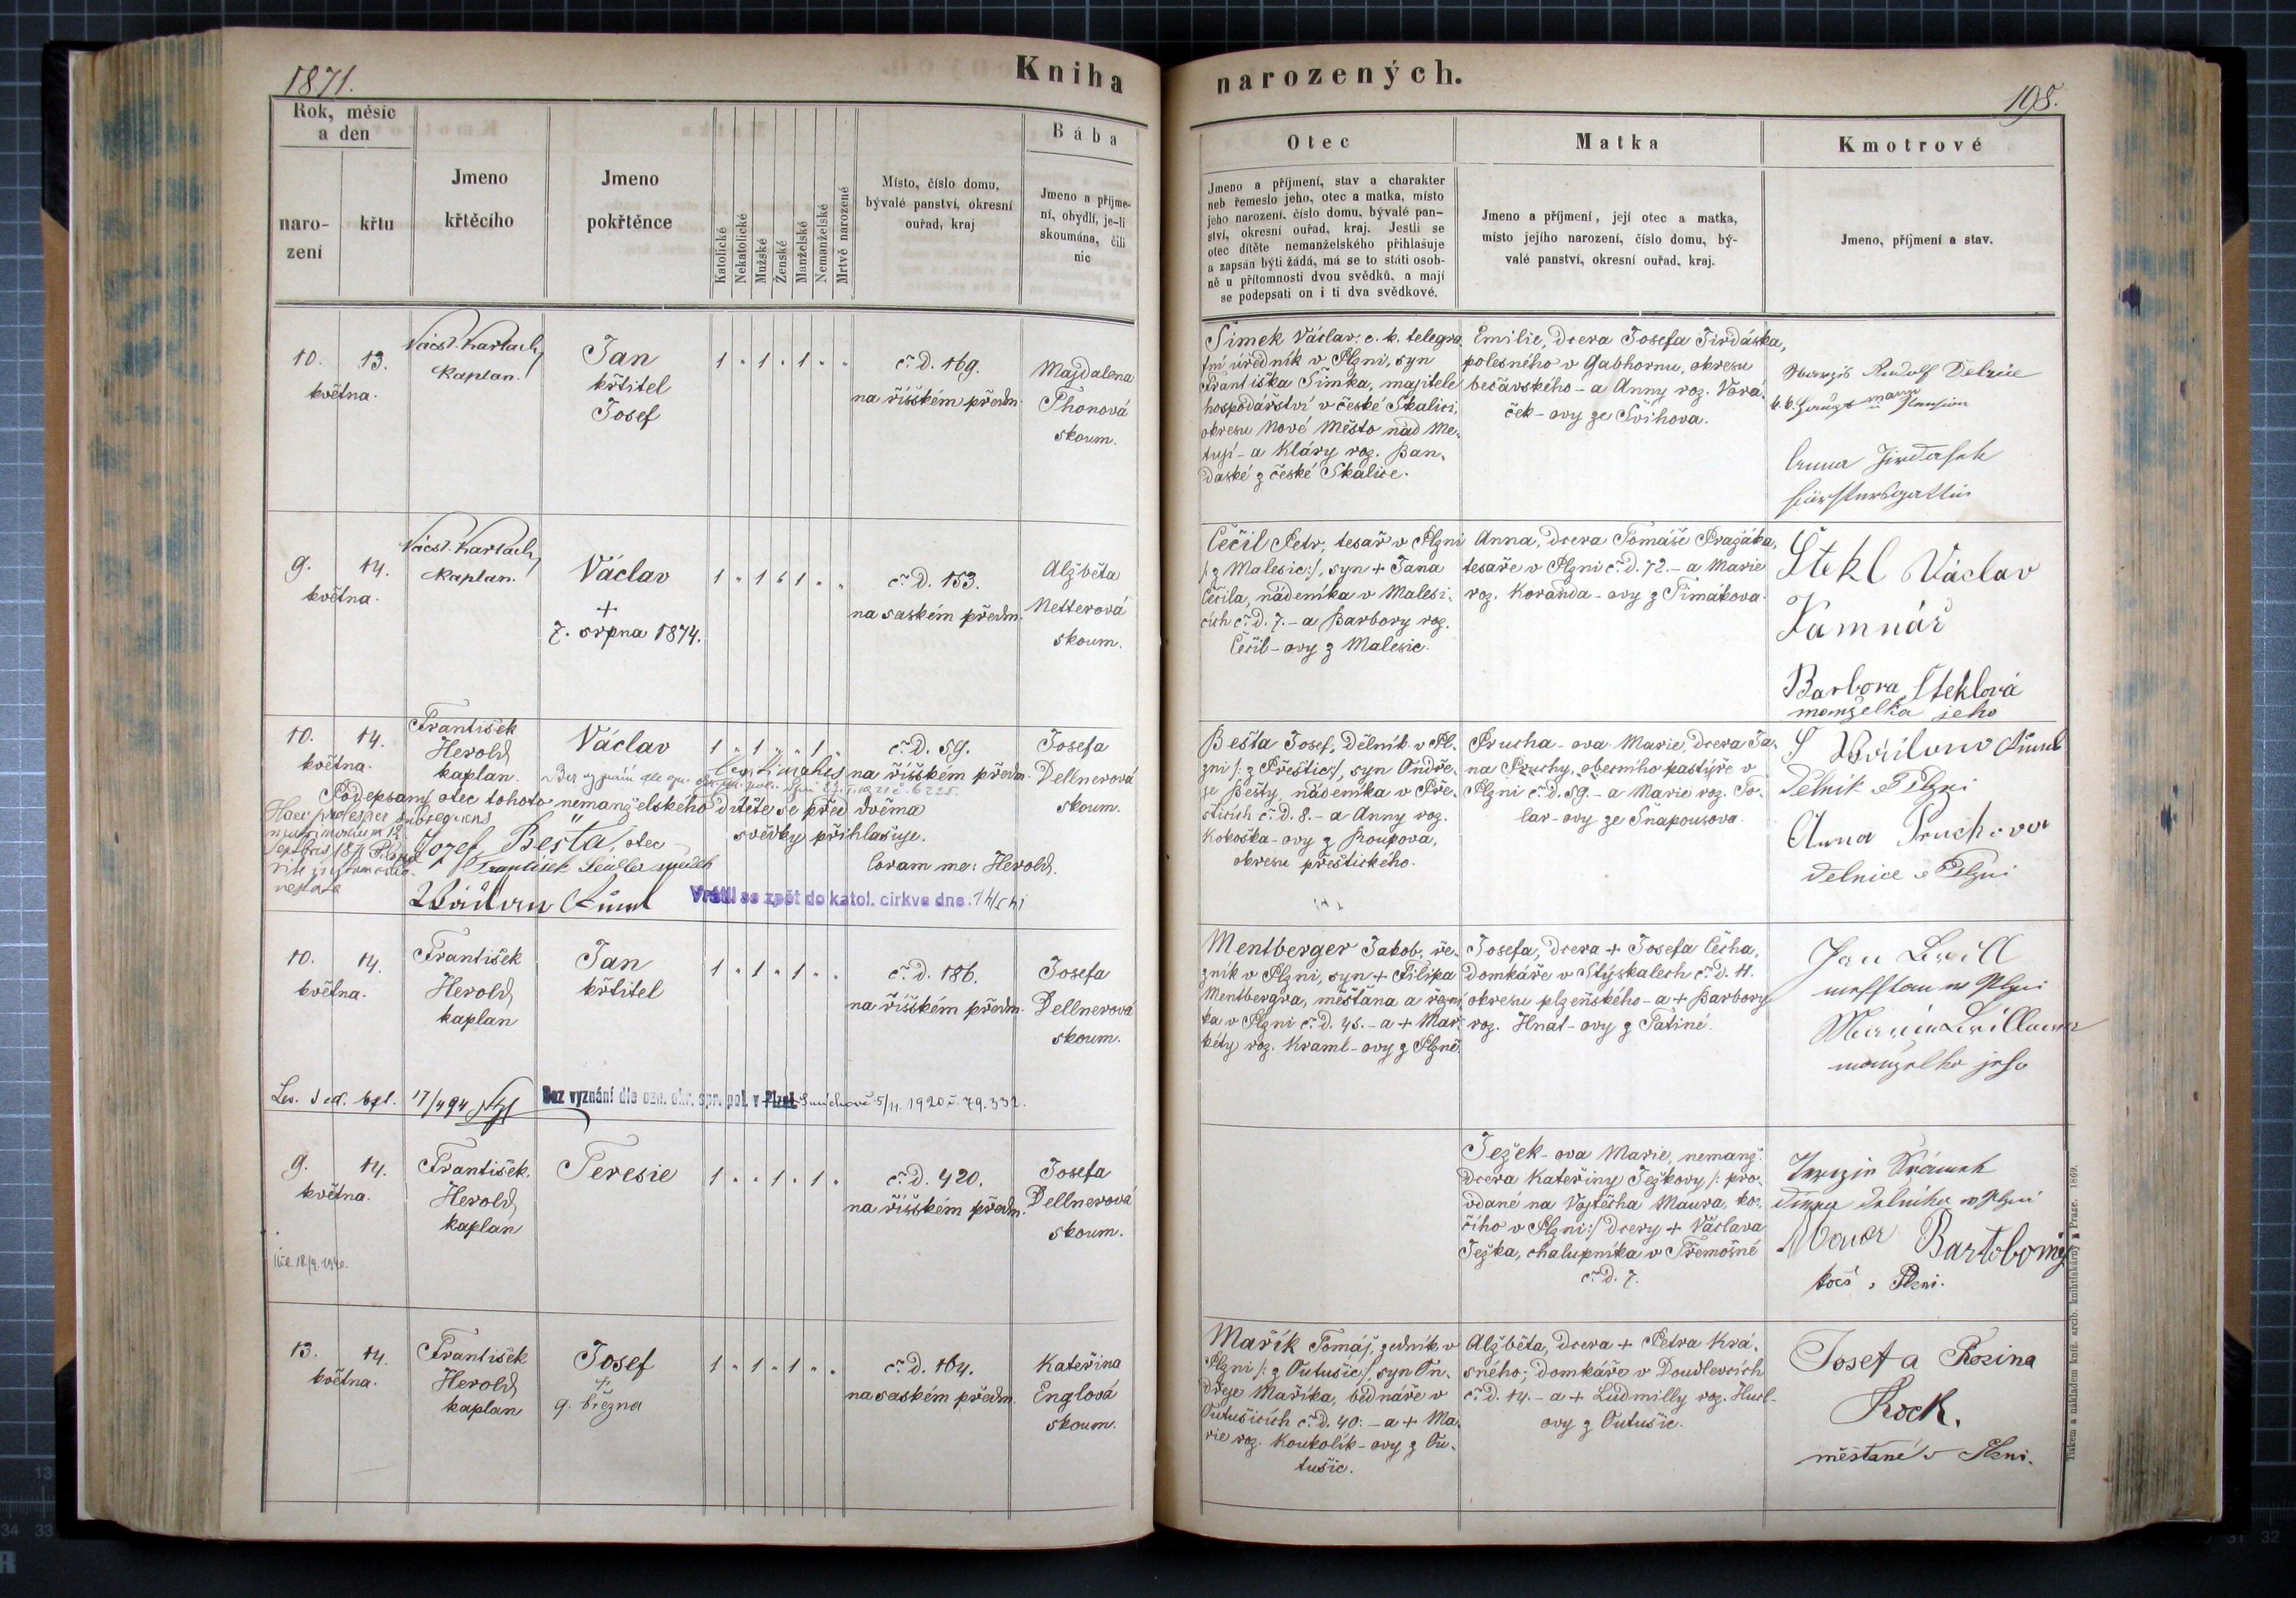 1871.
Kniha
narozených.
195.
Rok, měsíc
a den
naro-
zení
křtu
Jmeno
křtěcího
Jmeno
pokřtěnce
Katolické
Nekatolické
Mužské
Ženské
Manželské
Nemanželské
Mrtvě narozené
Místo, číslo domu,
bývalé panství, okresní
ouřad, kraj
Bába
Jmeno a příjme-
ní, obydlí, je-li
skoumána, čili
nic
Otec
Jmeno a příjmení, stav a charakter
neb řemeslo jeho, otec a matka, místo
jeho narození, číslo domu, bývalé pan-
ství, okresní ouřad, kraj. Jestli se
otec dítěte nemanželského přihlašuje
a zapsán býti žádá, má se to státi osob-
ně u přítomnosti dvou svědků, a mají
se podepsati on i ti dva svědkové.
Matka
Jmeno a příjmení, její otec a matka,
místo jejího narození, číslo domu, bý-
valé panství, okresní ouřad, kraj.
Kmotrové
Jmeno, příjmení a stav.
10. 13.
května.
Václ. Karlach,
kaplan.
Jan
křtitel
Josef
1 " 1 " 1 " "
č. d. 169.
na říšském předm.
Majdalena
Thonová
skoum.
Šimek Václav, c. k. telegra-
fní úředník v Plzni, syn
Františka Šimka, majitele
hospodářství v české Skalici,
okresu Nové Město nad Me-
tují - a Kláry roz. Ban-
daské z české Skalice.
Emilie, dcera Josefa Jirdáska,
polesného v Gabhornu, okresu
bečávského - a Anny roz. Vorá-
ček-ovy ze Švihova.
Rudolf
Anna Jirdasek
Förstersgattin
9. 14.
května.
Václ. Karlach,
kaplan.
Václav
+
7. srpna 1874.
1 " 1 " 1 " "
č. d. 153.
na saském předm.
Alžběta
Netterová
skoum.
Čečil Petr, tesař v Plzni
/: z Malesic :/, syn + Jana
Čečila, nádeníka v Malesi-
cích č. d. 7. - a Barbory roz.
Čečil-ovy z Malesic.
Anna, dcera Tomáše Pražáka,
tesaře v Plzni č. d. 72. - a Marie
roz. Koranda-ovy z Timákova.
Štekl Václav
Kamnář
Barbora Šteklová
manželka jeho
10. 14.
května.
František
Herold,
kaplan.
Václav
1 " 1 " " 1 "
legitimatus
Bez vyznání dle
č. d. 59.
na říšském předm.
Josefa
Dellnerová
skoum.
Podepsaný otec tohoto nemanželského dítěte se před dvěma
svědky přihlašuje.
Jozef Bešta, otec
František Seidler svědek
Coram me: Herold.
Vrátil se zpět do katol. církve dne
Bešta Josef, dělník v Pl-
zni /: z Přeštic :/, syn Ondře-
je Bešty, nádeníka v Pře-
šticích č. d. 8. - a Anny roz.
Kokoška-ovy z Roupova,
okresu přeštického.
Prucha-ova Marie, dcera Ja-
na Pruchy, obecního pastýře v
Plzni č. d. 59 - a Marie roz. To-
lar-ovy ze Šnapousova.
Delnik v Plzni
Anna Pruchova
delnice v Plzni
10. 14.
května.
František
Herold,
kaplan
Jan
křtitel
1 " 1 " 1 " "
č. d. 186.
na říšském předm.
Josefa
Dellnerová
skoum.
Bez vyznání dle ozn. okr. spr. pol. v Plzni Smíchově 5/11. 1920 č. 79.332.
Mentberger Jakob, ře-
zník v Plzni, syn + Filipa
Mentbergra, měšťana a řezní-
ka v Plzni č. d. 45. - a + Mar-
kéty roz. Kraml-ovy z Plzně.
Josefa, dcera + Josefa Čecha,
domkáře v Stýskalech č. d. 11.
okresu plzeňského - a + Barbory
roz. Hnat-ovy z Tatiné.
Jan
manželka jeho
9. 14.
května.
František
Herold,
kaplan
Teresie
1 " " 1 " 1 "
č. d. 420.
na říšském předm.
Josefa
Dellnerová
skoum.
Ježek-ova Marie, nemanž.
dcera Kateřiny Ježkovy /: pro-
vdané na Vojtěcha Maura, ko-
čího v Plzni :/ dcery + Václava
Ježka, chalupníka v Třemošné
č. d. 7.
Maur Bartoloměj
kočí v Plzni.
13. 14.
května.
František
Herold,
kaplan
Josef
+
9. března
1 " 1 " 1 " "
č. d. 164.
na saském předm.
Kateřina
Englová
skoum.
Mařík Tomáš, zedník v
Plzni /: z Outušic :/, syn On-
dřeje Maříka, bednáře v
Outušicích č. d. 40. - a + Ma-
rie roz. Koukolík-ovy z Ou-
tušic.
Alžběta, dcera + Petra Krá-
sného, domkáře v Doudlevcích
č. d. 14. - a + Ludmilly roz. Hurl-
ovy z Outušic.
Josef a Rosina
Rock,
měšťané v Plzni.
Tiskem a nákladem kníž. arcib. knihtiskárny v Praze. 1869.